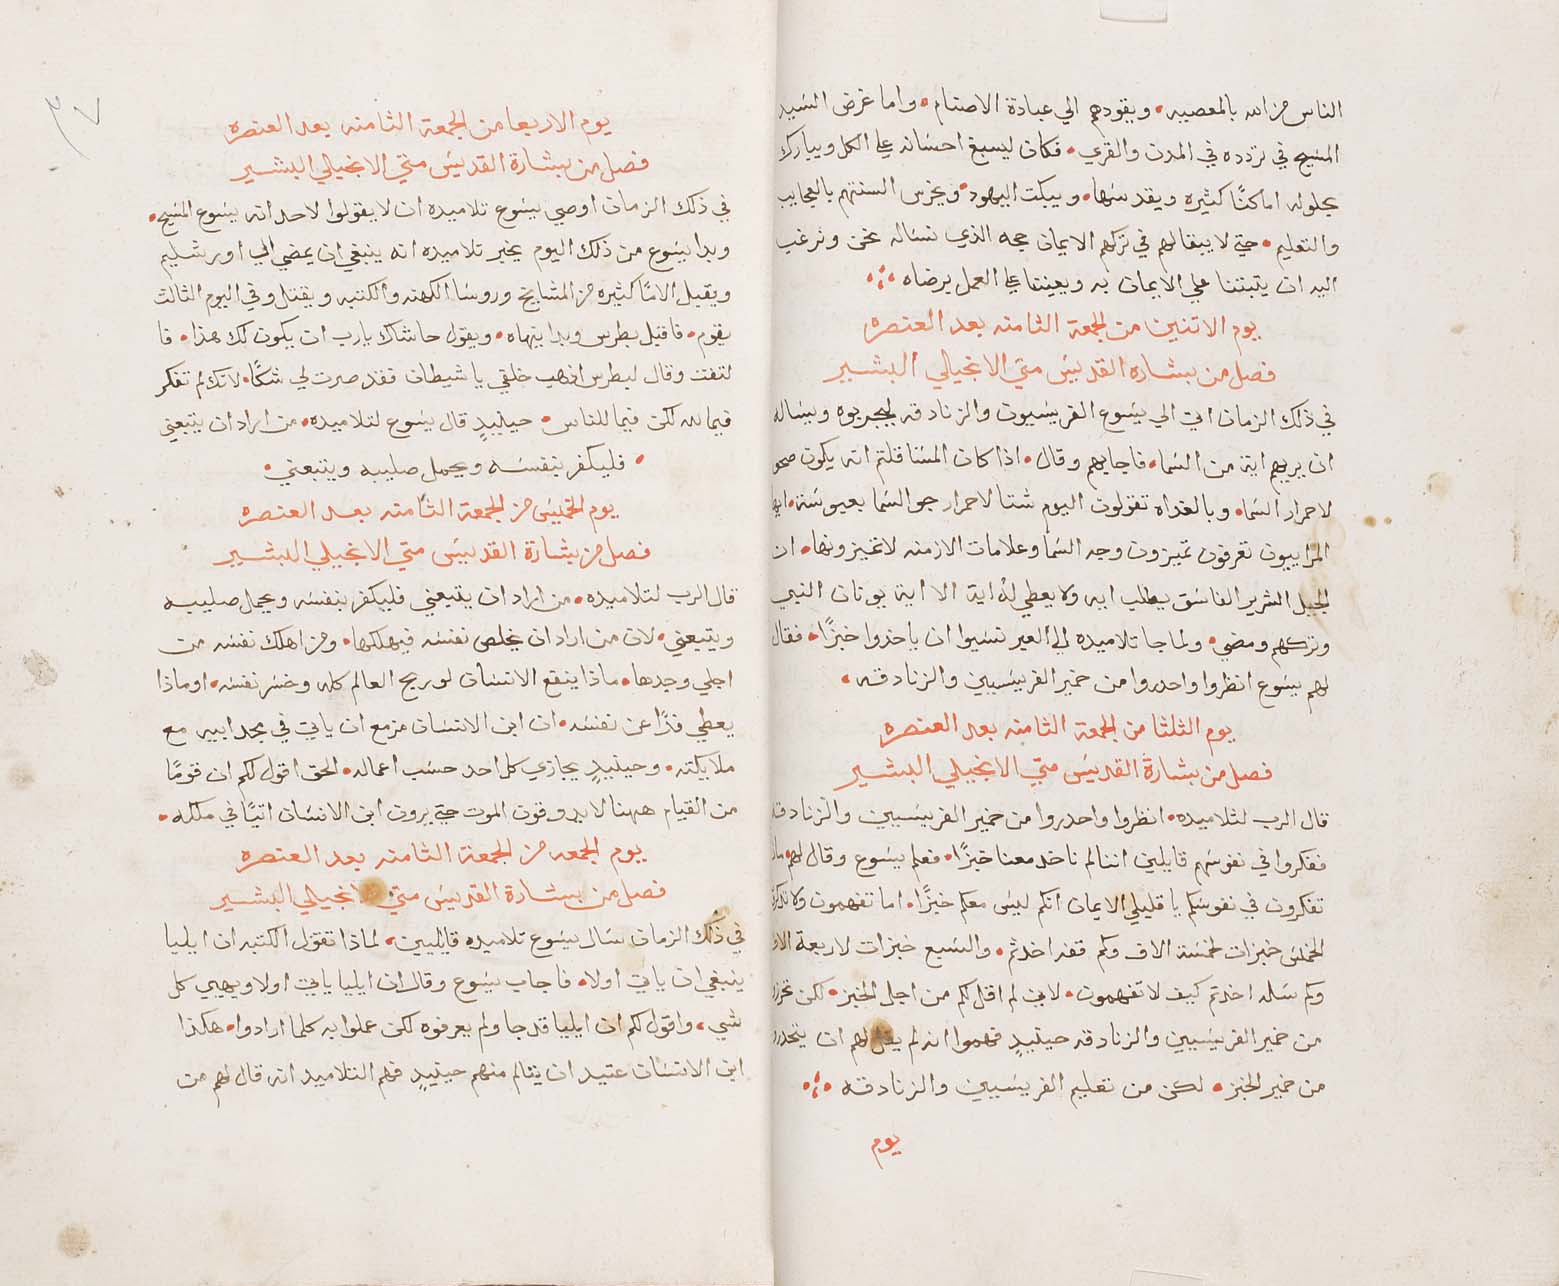 الناس من الله بالمعصيه • ويقودهم الي عبادة الاصنام • واما غرض السيد
المسيح في تردده في المدن والقري • فكان ليسبغ احسانه علي الكل ويبارك
بحلوله اماكنًا كثيره ويقدسها • ويبكت اليهود • ويخرس السنتهم بالعجايب
والتعليم • حتي لا يبقا لهم في تركهم الايمان حجه الذي نساله نحن ونرغب
اليه ان يثبتنا علي الايمان به ويعيننا علي العمل برضاه
يوم الاتنين من الجمعة الثامنه بعد العنصره
فصل من بشاره القديس متي الانجيلي البشير
في ذلك الزمان اتي الي يسوع الفريسيون والزنادقه ليجربوه ويساله
ان يريهم اية من السما • فاجابهم وقال • اذا كان المسا قلتم انه يكون صحو
لاحمرار السما • وبالغداه تقولون اليوم شتا لاحمرار جو السما بعبوسة • ايها
المراييون تعرفون تميزون وجه السما وعلامات الازمنه لا تميزونها • ان
الجيل الشرير الفاسق يطلب ايه ولا يعطي له اية الا اية يونان النبي
وتركهم ومضي • ولما جا تلاميذه الي العبر نسيوا ان ياخذوا خبزًا • فقال
لهم يسوع انظروا واحدروا من خمير الفريسيين والزنادقه •
يوم الثلثا من الجمعة الثامنه بعد العنصره
فصل من بشارة القديس متي الانجيلي البشير
قال الرب لتلاميذه • انظروا واحدروا من خمير الفريسيين والزنادقه
ففكروا في نفوسهم قايلين اننا لم ناخد معنا خبزًا • فعلم يسوع وقال لهم
تفكرون في نفوسكم يا قليلي الايمان انكم ليس معكم خبزًا • اما تفهمون ولا
الخمس خبزات لخمسة الاف وكم قفه اخدتم • والسبع خبزات لاربعة
وكم سله اخدتم كيف لا تفهمون • لاني لم اقل لكم من اجل الخبز • لكن
من خمير الفريسيين والزنادقه حينيدٍ فهموا انه لم يقل لهم ان
من خمير الخبز • لكن من تعليم الفريسيين والزنادقه
يوم
٣٧
يوم الاربعا من الجمعة الثامنه بعد العنصره
فصل من بشارة القديس متي الانجيلي البشير
في ذلك الزمان اوصي يسوع تلاميده ان لا يقولوا لاحد انه يسوع المسيح •
وبدا يسوع من ذلك اليوم يخبر تلاميده انه ينبغي ان يمضي الي اورشليم
ويقبل الامًا كثيره من المشايخ وروسا الكهنه والكتبه ويقتل وفي اليوم الثالث
يقوم • فاقبل بطرس وبدا ينهاه • ويقول حاشاك يارب ان يكون لك هذا • فا
لتفت وقال لبطرس اذهب خلفي يا شيطان فقد صرت لي شكًا • لانك لم تفكر
فيما لله لكن فيما للناس • حينيدٍ قال يسوع لتلاميده • من اراد ان يتبعني
• فليكفر بنفسه ويحمل صليبه ويتبعني •
يوم الخميس من الجمعة الثامنه بعد العنصره
فصل من بشارة القديس متي الانجيلي البشير
قال الرب لتلاميده • من اراد ان يتبعني فليكفر بنفسه ويحمل صليبه
ويتبعني • لان من اراد ان يخلص نفسه فيهلكها • ومن اهلك نفسه من
اجلي وجدها • ماذا ينفع الانسان لو ربح العالم كله وخسر نفسه • او ماذا
يعطي فدًا عن نفسه • ان ابن الانسان مزمع ان ياتي في مجد ابيه مع
ملايكته • وحينيدٍ يجازي كل احد حسب اعماله • الحق اقول لكم ان قومًا
من القيام ههنا لا يدوقون الموت حتي يرون ابن الانسان اتيًا في ملكه •
يوم الجمعه من الجمعة الثامنه بعد العنصره
فصل من بشارة القديس متي الانجيلي البشير
في ذلك الزمان سال يسوع تلاميده قايليين • لماذا تقول الكتبه ان ايليا
ينبغي ان ياتي اولا • فاجاب يسوع وقال ان ايليا ياتي اولا ويهيي كل
شي • واقول لكم ان ايليا قد جا ولم يعرفوه لكن عملوا به كلما ارادوا • هكذا
ابن الانسان عتيد ان يتالم منهم حينيدٍ فهم التلاميد انه قال لهم من